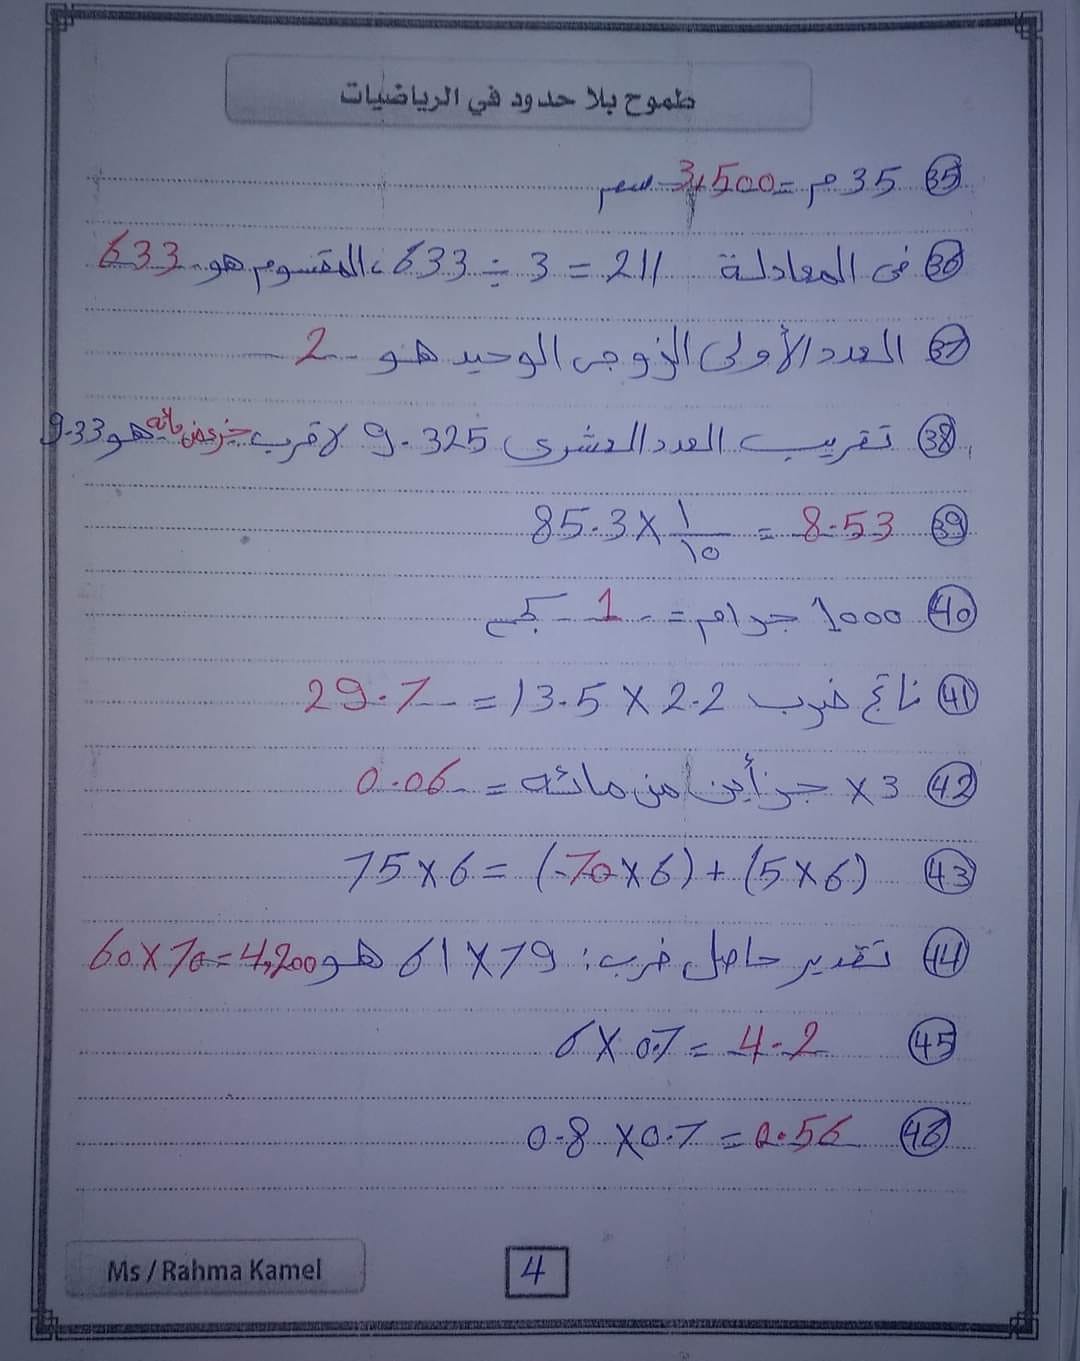 طموح بلا حدود في الرياضيات
(35) 35 م = 3,500 سم
(36) فى المعادلة 633 ÷ 3 = 211 ، المقسوم هو 633
(37) العدد الأولى الزوجى الوحيد هو 2
(38) تقريب العدد العشرى 9.325 لاقرب جزء من مائه هو 9.33
(39) 85.3 × ١/١٥ = 8.53
(40) 1000 جرام = 1 كجم
(41) ناتج ضرب 2.2 × 13.5 = 29.7
(42) 3 × جزأين من مائه = 0.06
(43) 75 × 6 = (70 × 6) + (5 × 6)
(44) تقدير حاصل ضرب: 79 × 61 هو 60 × 70 = 4,200
(45) 6 × 0.7 = 4.2
(46) 0.8 × 0.7 = 0.56
Ms / Rahma Kamel
4